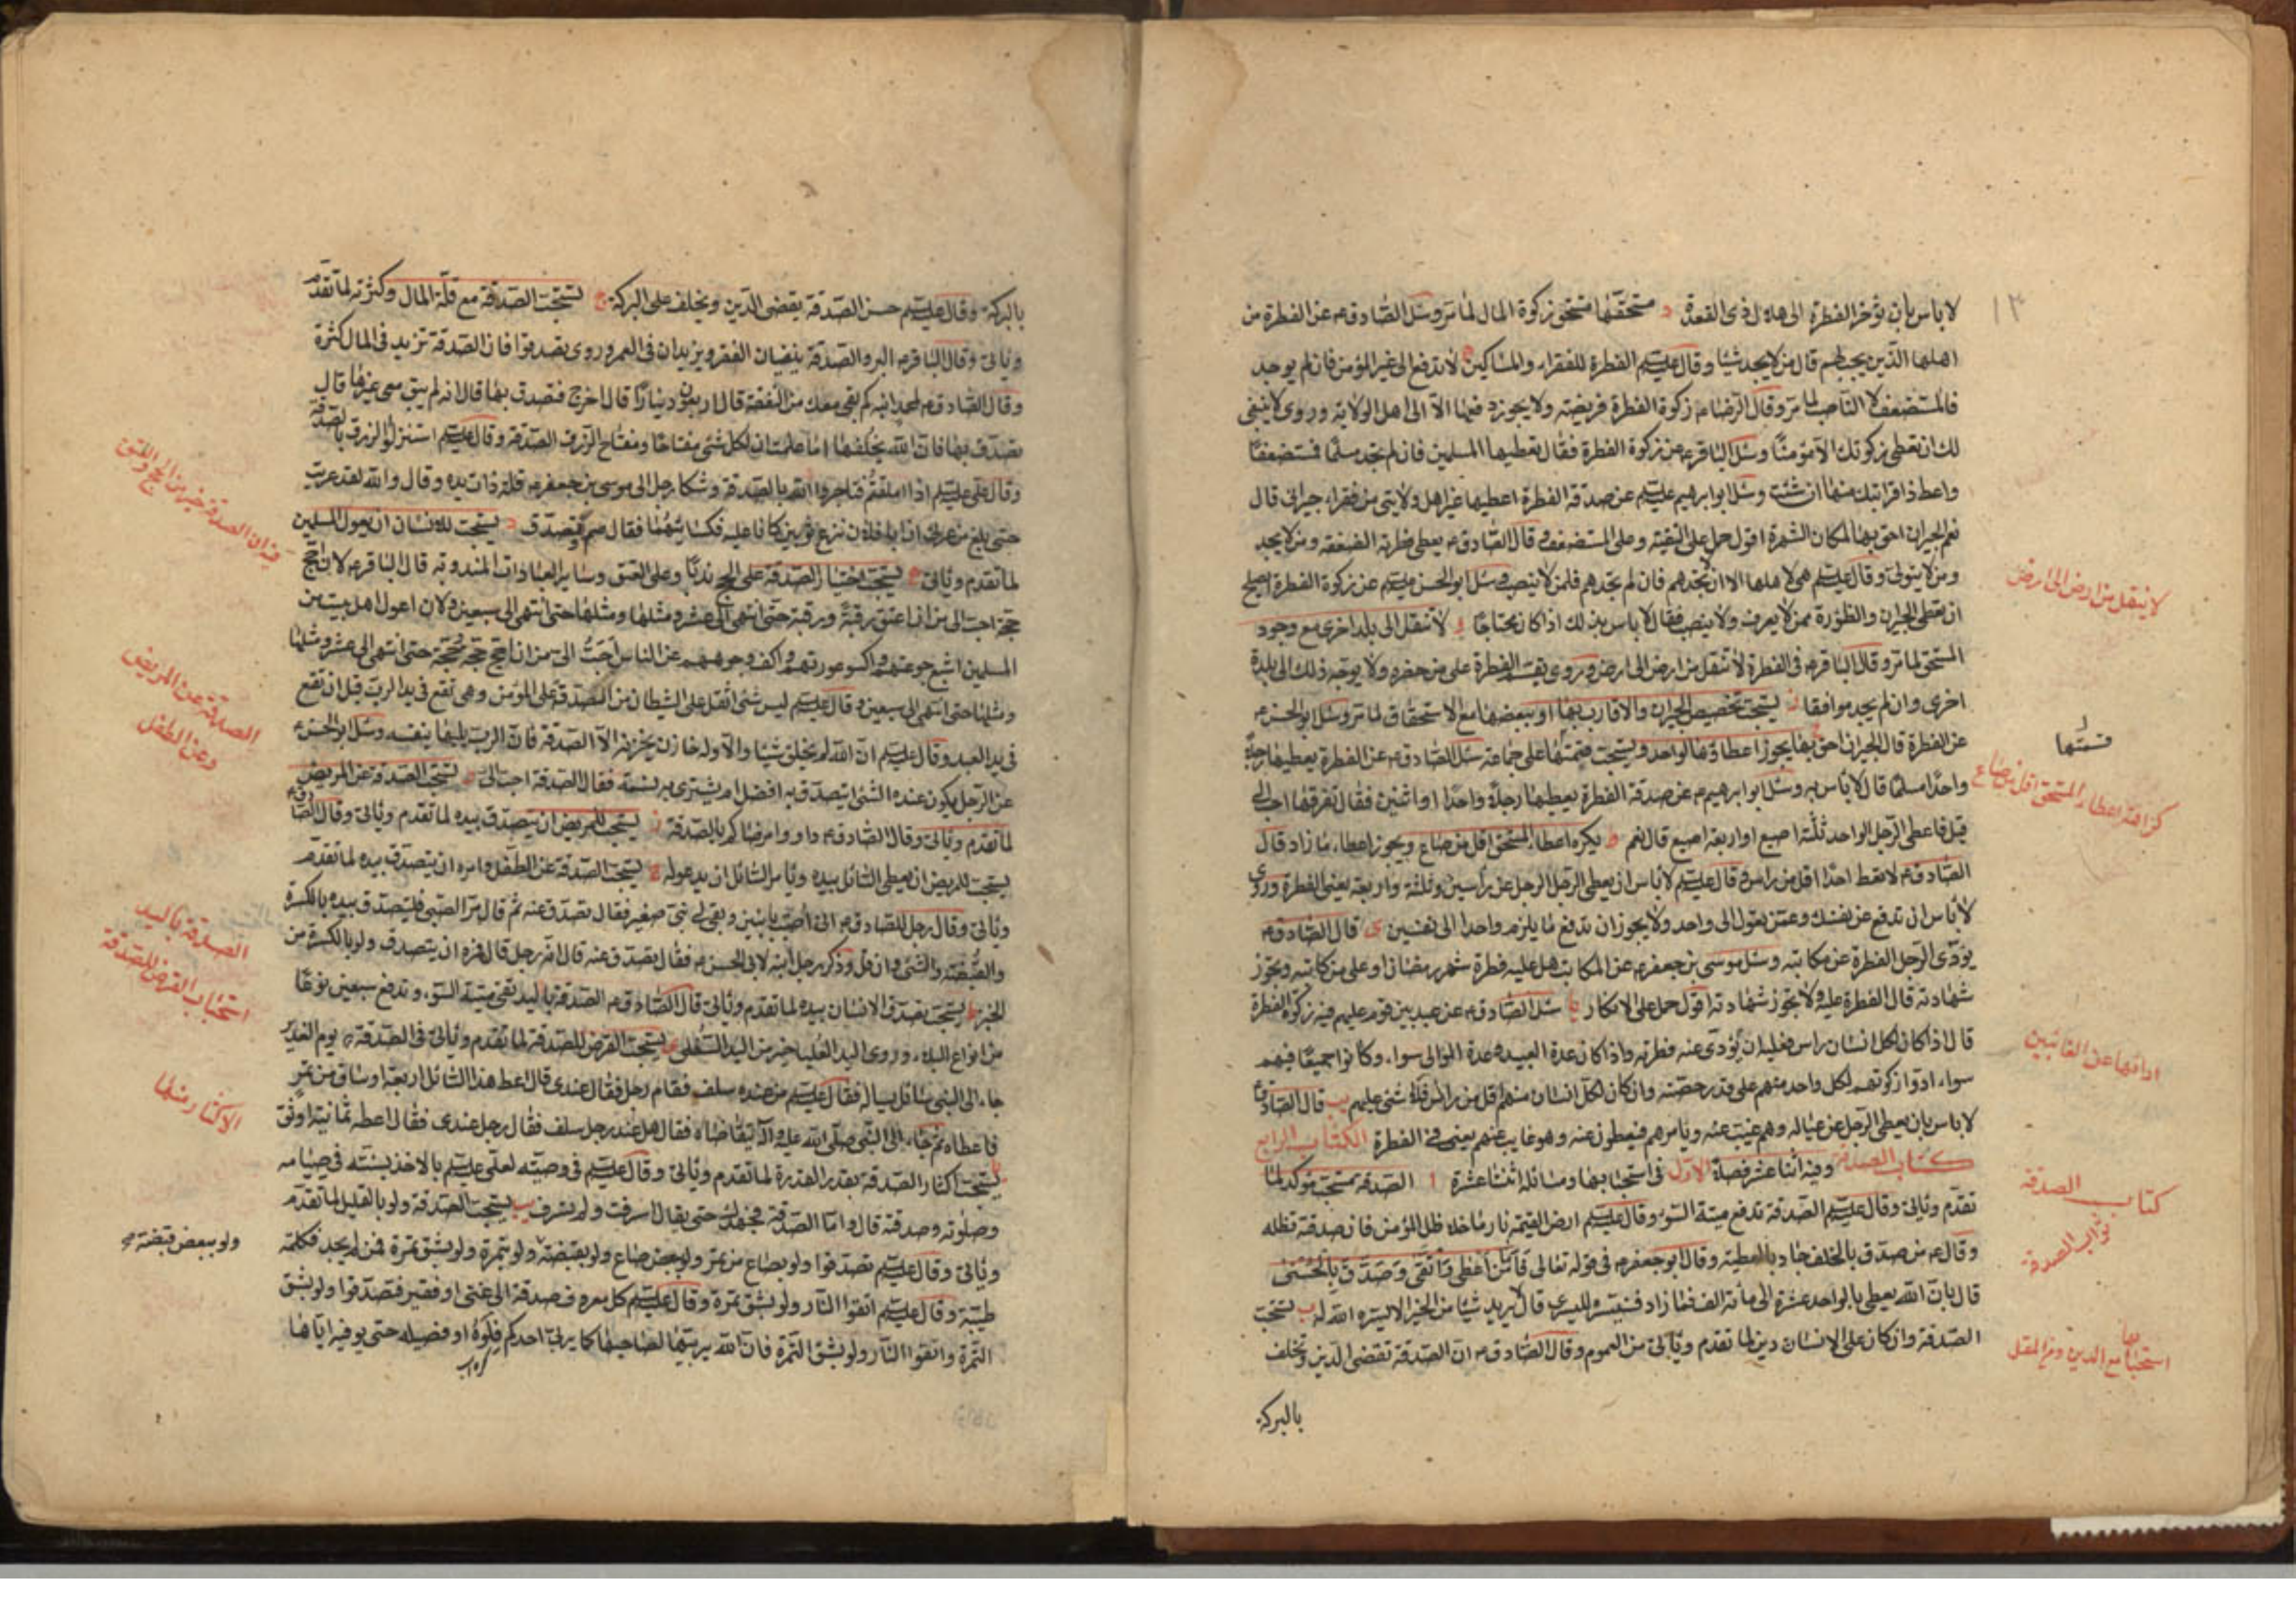 لا باس بان يؤخر الفطرة الى هلال ذى القعدة د مستحقها مستحق زكوة المال لما مر وسئل الصادق ع عن الفطرة من
اهلها الذين يجب لهم قال من لا يجد شيئا وقال عليه السلم الفطرة للفقراء والمساكين ه لا تدفع الى غير المؤمن فان لم يوجد
فالمستضعف لا الناصب لما مر وقال الرضا ع زكوة الفطرة فريضة ولا يجوز دفعها الا الى اهل الولاية وروى لا ينبغى
لك ان تعطى زكوتك الا مؤمنا وسئل الباقر ع عن زكوة الفطرة فقال تعطيها المسلمين فان لم تجد مسلما فمستضعفا
واعط ذا قرابتك منها ان شئت وسئل ابو ابراهيم عليه السلم عن صدقة الفطرة اعطيها غير اهل ولايتى من فقراء جيرانى قال
نعم الجيران احق بها لمكان الشهرة اقول حمل على التقية وعلى المستضعف وقال الصادق ع يعطى فطرته الضعفة ومن لا يجد
ومن لا يتولى وقال عليه السلم هى لاهلها الا ان لا تجدهم فان لم تجدهم فلمن لا ينصب وسئل ابو الحسن عليه السلم عن زكوة الفطرة ايصلح
ان تعطى الجيران والظؤرة ممن لا يعرف ولا ينصب فقال لا باس بذلك اذا كان محتاجا و لا تنقل الى بلد اخرى مع وجود
المستحق لما مر وقال الباقر ع فى الفطرة لا تنقل من ارض الى ارض وروى يقسم الفطرة على من حضره ولا يوجه ذلك الى بلدة
اخرى وان لم يجد موافقا ز يستحب تخصيص الجيران والاقارب بها او ببعضها مع الاستحقاق لما مر وسئل ابو الحسن ع
عن الفطرة قال الجيران احق بها ح يجوز اعطاؤها لواحد ويستحب قسمتها على جماعة سئل الصادق ع عن الفطرة يعطيها رجلا
واحدا مسلما قال لا باس به وسئل ابو ابراهيم ع عن صدقة الفطرة يعطيها رجلا واحدا او اثنين فقال تفرقها احب الى
قيل فاعطى الرجل الواحد ثلثة اصيع او اربعة اصيع قال نعم ط يكره اعطاء المستحق اقل من صاع ويجوز اعطاء ما زاد قال
الصادق ع لا تعط احدا اقل من راس وقال عليه السلم لا باس ان يعطى الرجل الرجل عن راسين وثلثة واربعة يعنى الفطرة وروى
لا باس ان تدفع عن نفسك وعمن تعول الى واحد ولا يجوز ان تدفع ما يلزم واحدا الى نفسين ى قال الصادق ع
يؤدى الرجل الفطرة عن مكاتبه وسئل موسى بن جعفر ع عن المكاتب هل عليه فطرة شهر رمضان او على من كاتبه وتجوز
شهادته قال الفطرة عليه ولا تجوز شهادته اقول حمل على الانكار يا سئل الصادق ع عن عبد بين قوم عليهم فيه زكوة الفطرة
قال اذا كان لكل انسان راس فعليه ان يؤدى عنه فطرته واذا كان عدة العبيد وعدة الموالى سواء وكانوا جميعا فيهم
سواء ادوا زكوتهم لكل واحد منهم على قدر حصته وان كان لكل انسان منهم اقل من راس فلا شئ عليهم يب قال الصادق ع
لا باس بان يعطى الرجل عن عياله وهم غيب عنه ويامرهم فيعطون عنه وهو غايب عنهم يعنى فى الفطرة الكتاب الرابع
كتاب الصدقة وفيه اثنا عشر فصلا الاول فى استحبابها ومسائله اثنتا عشرة ا الصدقة مستحب مؤكد لما
تقدم وياتى وقال عليه السلم الصدقة تدفع ميتة السوء وقال عليه السلم ارض القيمة نار ما خلا ظل المؤمن فان صدقة تظله
وقال ع من صدق بالخلف جاد بالعطية وقال ابو جعفر ع فى قوله تعالى فاما من اعطى واتقى وصدق بالحسنى
قال بان الله يعطى بالواحد عشرة الى مائة الف فما زاد فسنيسره لليسرى قال لا يريد شيئا من الخير الا يسره الله له ب يستحب
الصدقة وان كان على الانسان دين لما تقدم وياتى من العموم وقال الصادق ع ان الصدقة تقضى الدين وتخلف
بالبركة
١٣
لا ينقل من ارض الى ارض
قسمتها
كراهة اعطاء المستحق اقل من صاع
ادائها عن الغائبين
كتاب الصدقة
ثواب الصدقة
استحبابها مع الدين ومع المقل
بالبركة وقال عليه السلم حسن الصدقة يقضى الدين ويخلف على البركة ج تستحب الصدقة مع قلة المال وكثرته لما تقدم
وياتى وقال الباقر ع البر والصدقة ينفيان الفقر ويزيدان فى العمر وروى تصدقوا فان الصدقة تزيد فى المال كثرة
وقال الصادق ع لمحمد ابنه كم بقى معك من النفقة قال اربعون دينارا قال اخرج فتصدق بها قال انه لم يبق معى غيرها قال
تصدق بها فان الله يخلفها اما علمت ان لكل شئ مفتاحا ومفتاح الرزق الصدقة وقال عليه السلم استنزلوا الرزق بالصدقة
وقال على عليه السلم اذا املقتم فتاجروا الله بالصدقة وشكا رجل الى موسى بن جعفر ع قلة ذات يده وقال والله لقد عريت
حتى بلغ من عرى ان ابا فلان نزع ثوبين كانا عليه فكسانيهما فقال صم وتصدق د يستحب للانسان ان يعول المسلمين
لما تقدم وياتى ه يستحب اختيار الصدقة على الحج ندبا وعلى العتق وساير العبادات المندوبة قال الباقر ع لان احج
حجة احب الى من ان اعتق رقبة ورقبة حتى انتهى الى عشر ومثلها ومثلها حتى انتهى الى سبعين ولان اعول اهل بيت من
المسلمين اشبع جوعتهم واكسو عورتهم واكف وجوههم عن الناس احب الى من ان احج حجة وحجة حتى انتهى الى عشر ومثلها
ومثلها حتى انتهى الى سبعين وقال عليه السلم ليس شئ اثقل على الشيطان من الصدقة على المؤمن وهى تقع فى يد الرب قبل ان تقع
فى يد العبد وقال عليه السلم ان الله لم يخلق شيئا الا وله خازن يخزنه الا الصدقة فان الرب يليها بنفسه وسئل ابو الحسن ع
عن الرجل يكون عنده الشئ ايتصدق به افضل ام يشترى به نسمة فقال الصدقة احب الى و تستحب الصدقة عن المريض
لما تقدم وياتى وقال الصادق ع داووا مرضاكم بالصدقة ز يستحب للمريض ان يتصدق بيده لما تقدم وياتى وقال الصادق ع
يستحب للمريض ان يعطى السائل بيده ويامر السائل ان يدعو له ح تستحب الصدقة عن الطفل وامره ان يتصدق بيده لما تقدم
وياتى وقال رجل للصادق ع انى اصبت بابنين وبقى لى بنى صغير فقال تصدق عنه ثم قال مر الصبى فليتصدق بيده بالكسرة
والقبضة والشئ وان قل وذكر رجل ابنه لابى الحسن ع فقال تصدق عنه قال انه رجل قال فمره ان يتصدق ولو بالكسرة من
الخبز ط يستحب تصدق الانسان بيده لما تقدم وياتى قال الصادق ع الصدقة باليد تقى ميتة السوء وتدفع سبعين نوعا
من انواع البلاء وروى اليد العليا خير من اليد السفلى ى يستحب القرض للصدقة لما تقدم وياتى فى الصدقة يوم الغدير
جاء الى النبى سائل يساله فقال عليه السلم من عنده سلف فقام رجل فقال عندى قال اعط هذا السائل اربعة اوساق من تمر
فاعطاه ثم جاء الى النبى صلى الله عليه وآله يتقاضاه فقال هل عند رجل سلف فقال رجل عندى فقال اعطه ثمانية اوسق
يا يستحب اكثار الصدقة بقدر القدرة لما تقدم وياتى وقال عليه السلم فى وصيته لعلى عليه السلم بالاخذ بسنته فى صيامه
وصلوته وصدقته قال واما الصدقة فجهدك حتى يقال اسرفت ولم تسرف يب تستحب الصدقة ولو بالقليل لما تقدم
وياتى وقال عليه السلم تصدقوا ولو بصاع من تمر ولو ببعض صاع ولو بقبضة ولو بتمرة ولو بشق تمرة فمن لم يجد فكلمة
طيبة وقال عليه السلم اتقوا النار ولو بشق تمرة وقال عليه السلم كل معروف صدقة الى غنى او فقير فتصدقوا ولو بشق
التمرة واتقوا النار ولو بشق التمرة فان الله يربيها لصاحبها كما يربى احدكم فلوه او فصيله حتى يوفيه اياها
الصدقة عن المريض
وعن الطفل
الصدقة باليد
استحباب القرض للصدقة
الاكثار منها
ولو ببعض قبضة صح